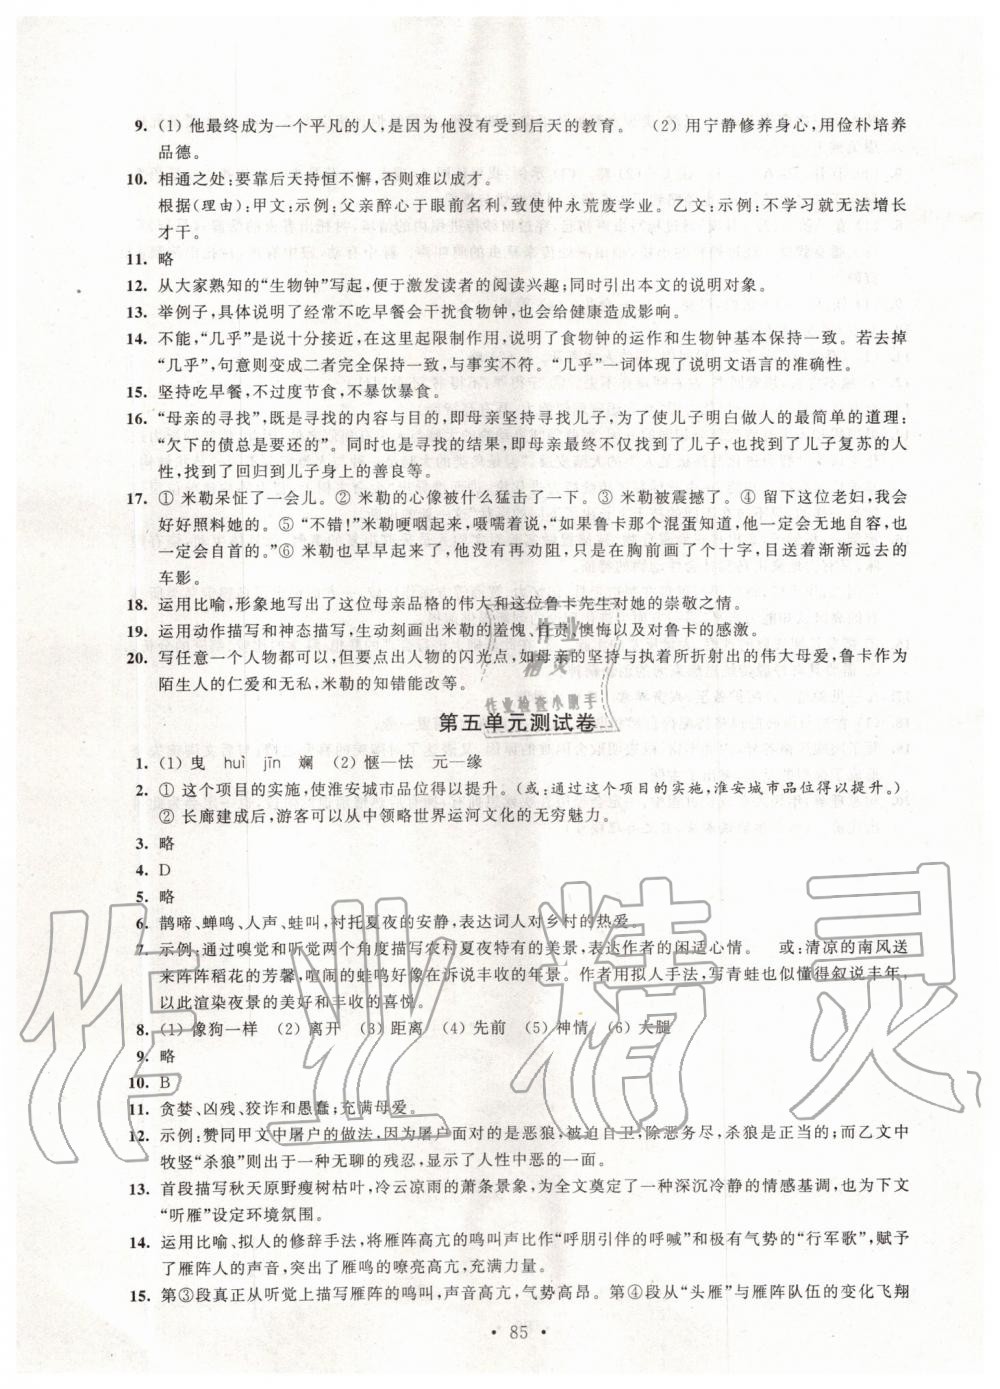 9. (1) 他最终成为一个平凡的人,是因为他没有受到后天的教育。 (2) 用宁静修养身心,用俭朴培养
品德。
10. 相通之处:要靠后天持恒不懈,否则难以成才。
根据(理由):甲文:示例:父亲醉心于眼前名利,致使仲永荒废学业。乙文:示例:不学习就无法增长
才干。
11. 略
12. 从大家熟知的“生物钟”写起,便于激发读者的阅读兴趣;同时引出本文的说明对象。
13. 举例子,具体说明了经常不吃早餐会干扰食物钟,也会给健康造成影响。
14. 不能,“几乎”是说十分接近,在这里起限制作用,说明了食物钟的运作和生物钟基本保持一致。若去掉
“几乎”,句意则变成二者完全保持一致,与事实不符。“几乎”一词体现了说明文语言的准确性。
15. 坚持吃早餐,不过度节食,不暴饮暴食。
16. “母亲的寻找”,既是寻找的内容与目的,即母亲坚持寻找儿子,为了使儿子明白做人的最简单的道理:
“欠下的债总是要还的”。同时也是寻找的结果,即母亲最终不仅找到了儿子,也找到了儿子复苏的人
性,找到了回归到儿子身上的善良等。
17. ① 米勒呆怔了一会儿。② 米勒的心像被什么猛击了一下。③ 米勒被震撼了。④ 留下这位老妇,我会
好好照料她的。⑤ “不错!”米勒哽咽起来,嗫嚅着说,“如果鲁卡那个混蛋知道,他一定会无地自容,也
一定会自首的。”⑥ 米勒也早早起来了,他没有再劝阻,只是在胸前画了个十字,目送着渐渐远去的
车影。
18. 运用比喻,形象地写出了这位母亲品格的伟大和这位鲁卡先生对她的崇敬之情。
19. 运用动作描写和神态描写,生动刻画出米勒的羞愧、自责、懊悔以及对鲁卡的感激。
20. 写任意一个人物都可以,但要点出人物的闪光点,如母亲的坚持与执着所折射出的伟大母爱,鲁卡作为
陌生人的仁爱和无私,米勒的知错能改等。
作业
精灵
作业检查小助手
第五单元测试卷
1. (1) 曳 huì jīn 斓 (2) 惬—怯 元—缘
2. ① 这个项目的实施,使淮安城市品位得以提升。(或:通过这个项目的实施,淮安城市品位得以提升。)
② 长廊建成后,游客可以从中领略世界运河文化的无穷魅力。
3. 略
4. D
5. 略
6. 鹊啼、蝉鸣、人声、蛙叫,衬托夏夜的安静,表达词人对乡村的热爱。
7. 示例:通过嗅觉和听觉两个角度描写农村夏夜特有的美景,表达作者的闲适心情。 或:清凉的南风送
来阵阵稻花的芳馨,喧闹的蛙鸣好像在诉说丰收的年景。作者用拟人手法,写青蛙也似懂得叙说丰年,
以此渲染夜景的美好和丰收的喜悦。
8. (1) 像狗一样 (2) 离开 (3) 距离 (4) 先前 (5) 神情 (6) 大腿
9. 略
10. B
11. 贪婪、凶残、狡诈和愚蠢;充满母爱。
12. 示例:赞同甲文中屠户的做法,因为屠户面对的是恶狼,被迫自卫,除恶务尽,杀狼是正当的;而乙文中
牧竖“杀狼”则出于一种无聊的残忍,显示了人性中恶的一面。
13. 首段描写秋天原野瘦树枯叶,冷云凉雨的萧条景象,为全文奠定了一种深沉冷静的情感基调,也为下文
“听雁”设定环境氛围。
14. 运用比喻、拟人的修辞手法,将雁阵高亢的鸣叫声比作“呼朋引伴的呼喊”和极有气势的“行军歌”,赋予
了雁阵人的声音,突出了雁鸣的嘹亮高亢,充满力量。
15. 第③段真正从听觉上描写雁阵的鸣叫,声音高亢,气势高昂。第④段从“头雁”与雁阵队伍的变化飞翔
• 85 •
作业精灵